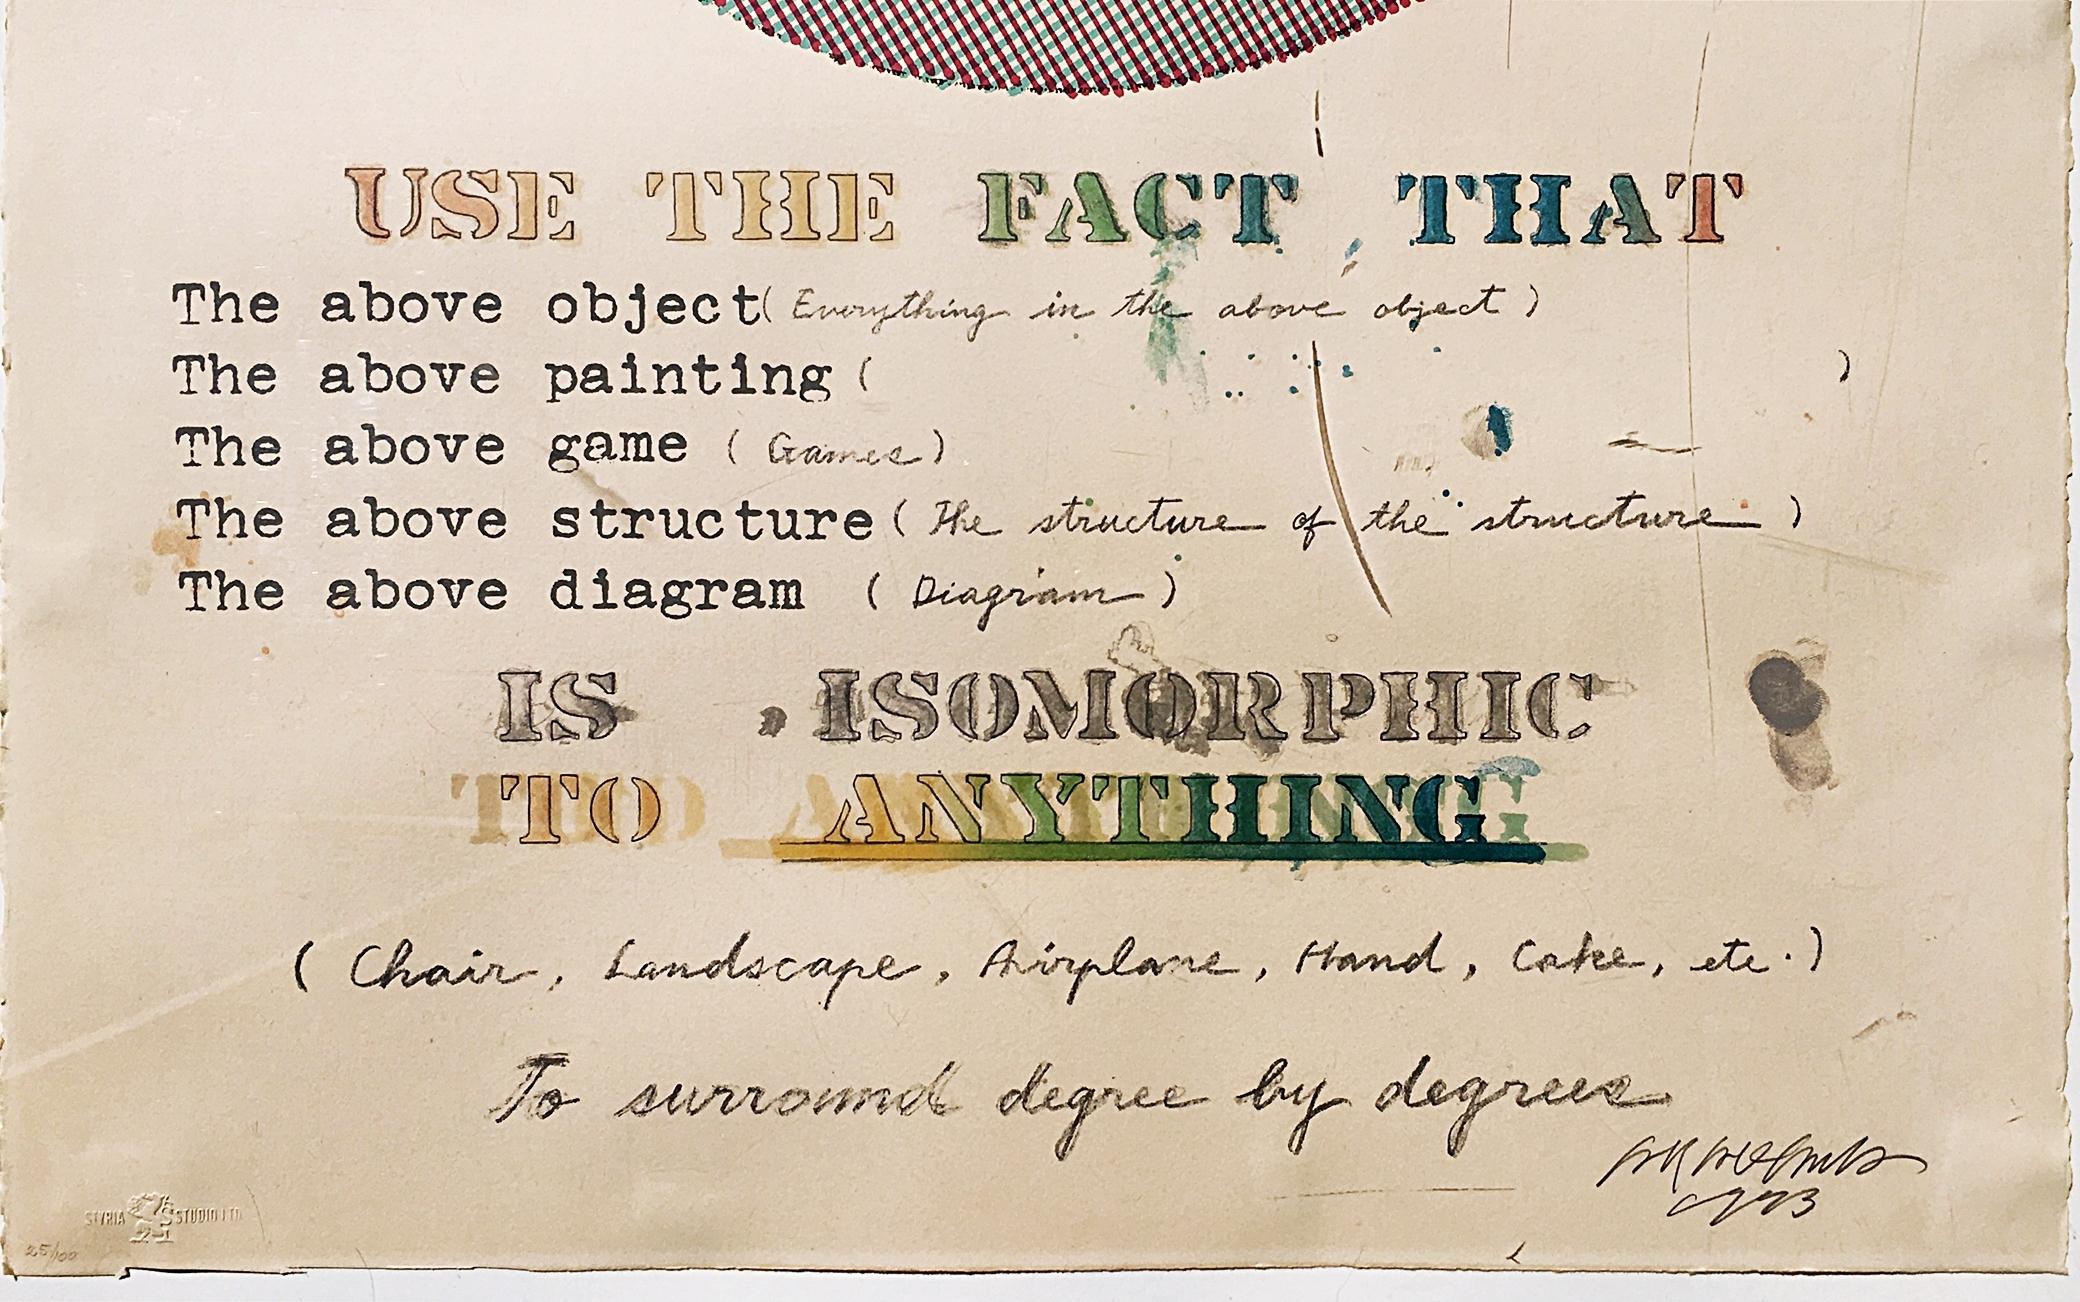 USE THE FACT THAT
The above object (Everything in the above object)
The above painting ( )
The above game (Games)
The above structure (The structure of the structure)
The above diagram (Diagram)
IS ISOMORPHIC
TO ANYTHING
(Chair, Landscape, Airplane, Hand, Cake, etc.)
To surround degree by degrees
1973
STYRIA STUDIO LTD
25/100